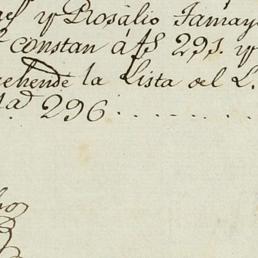 y Rosalio Tamay
constan áfs 291. y
rehende la Lista del L.
296